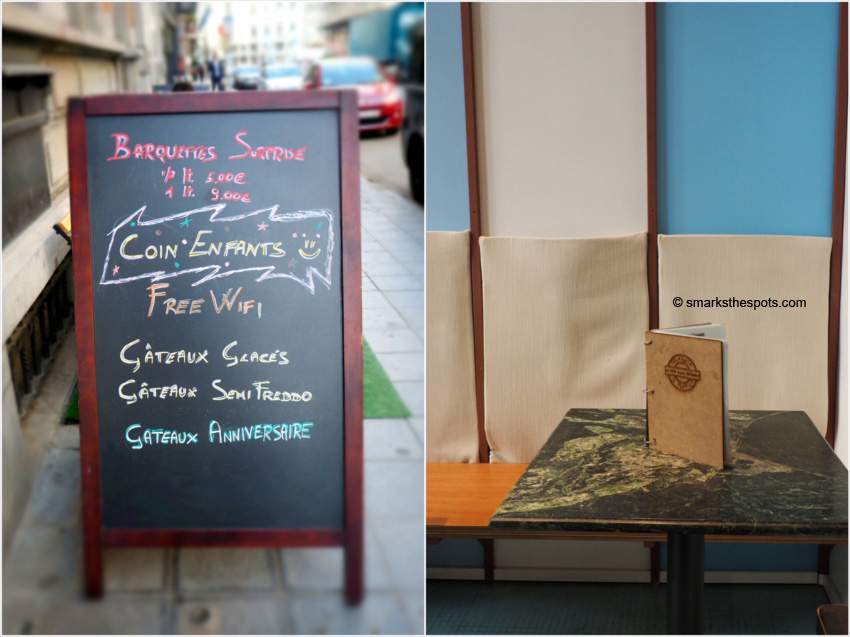 BARQUETTES SURPRISE
1/2 lt. 5,00€
1 lt. 9,00€
COIN ENFANTS
FREE WIFI
GÂTEAUX GLACÉS
GÂTEAUX SEMIFREDDO
GATEAUX ANNIVERSAIRE
© smarksthespots.com